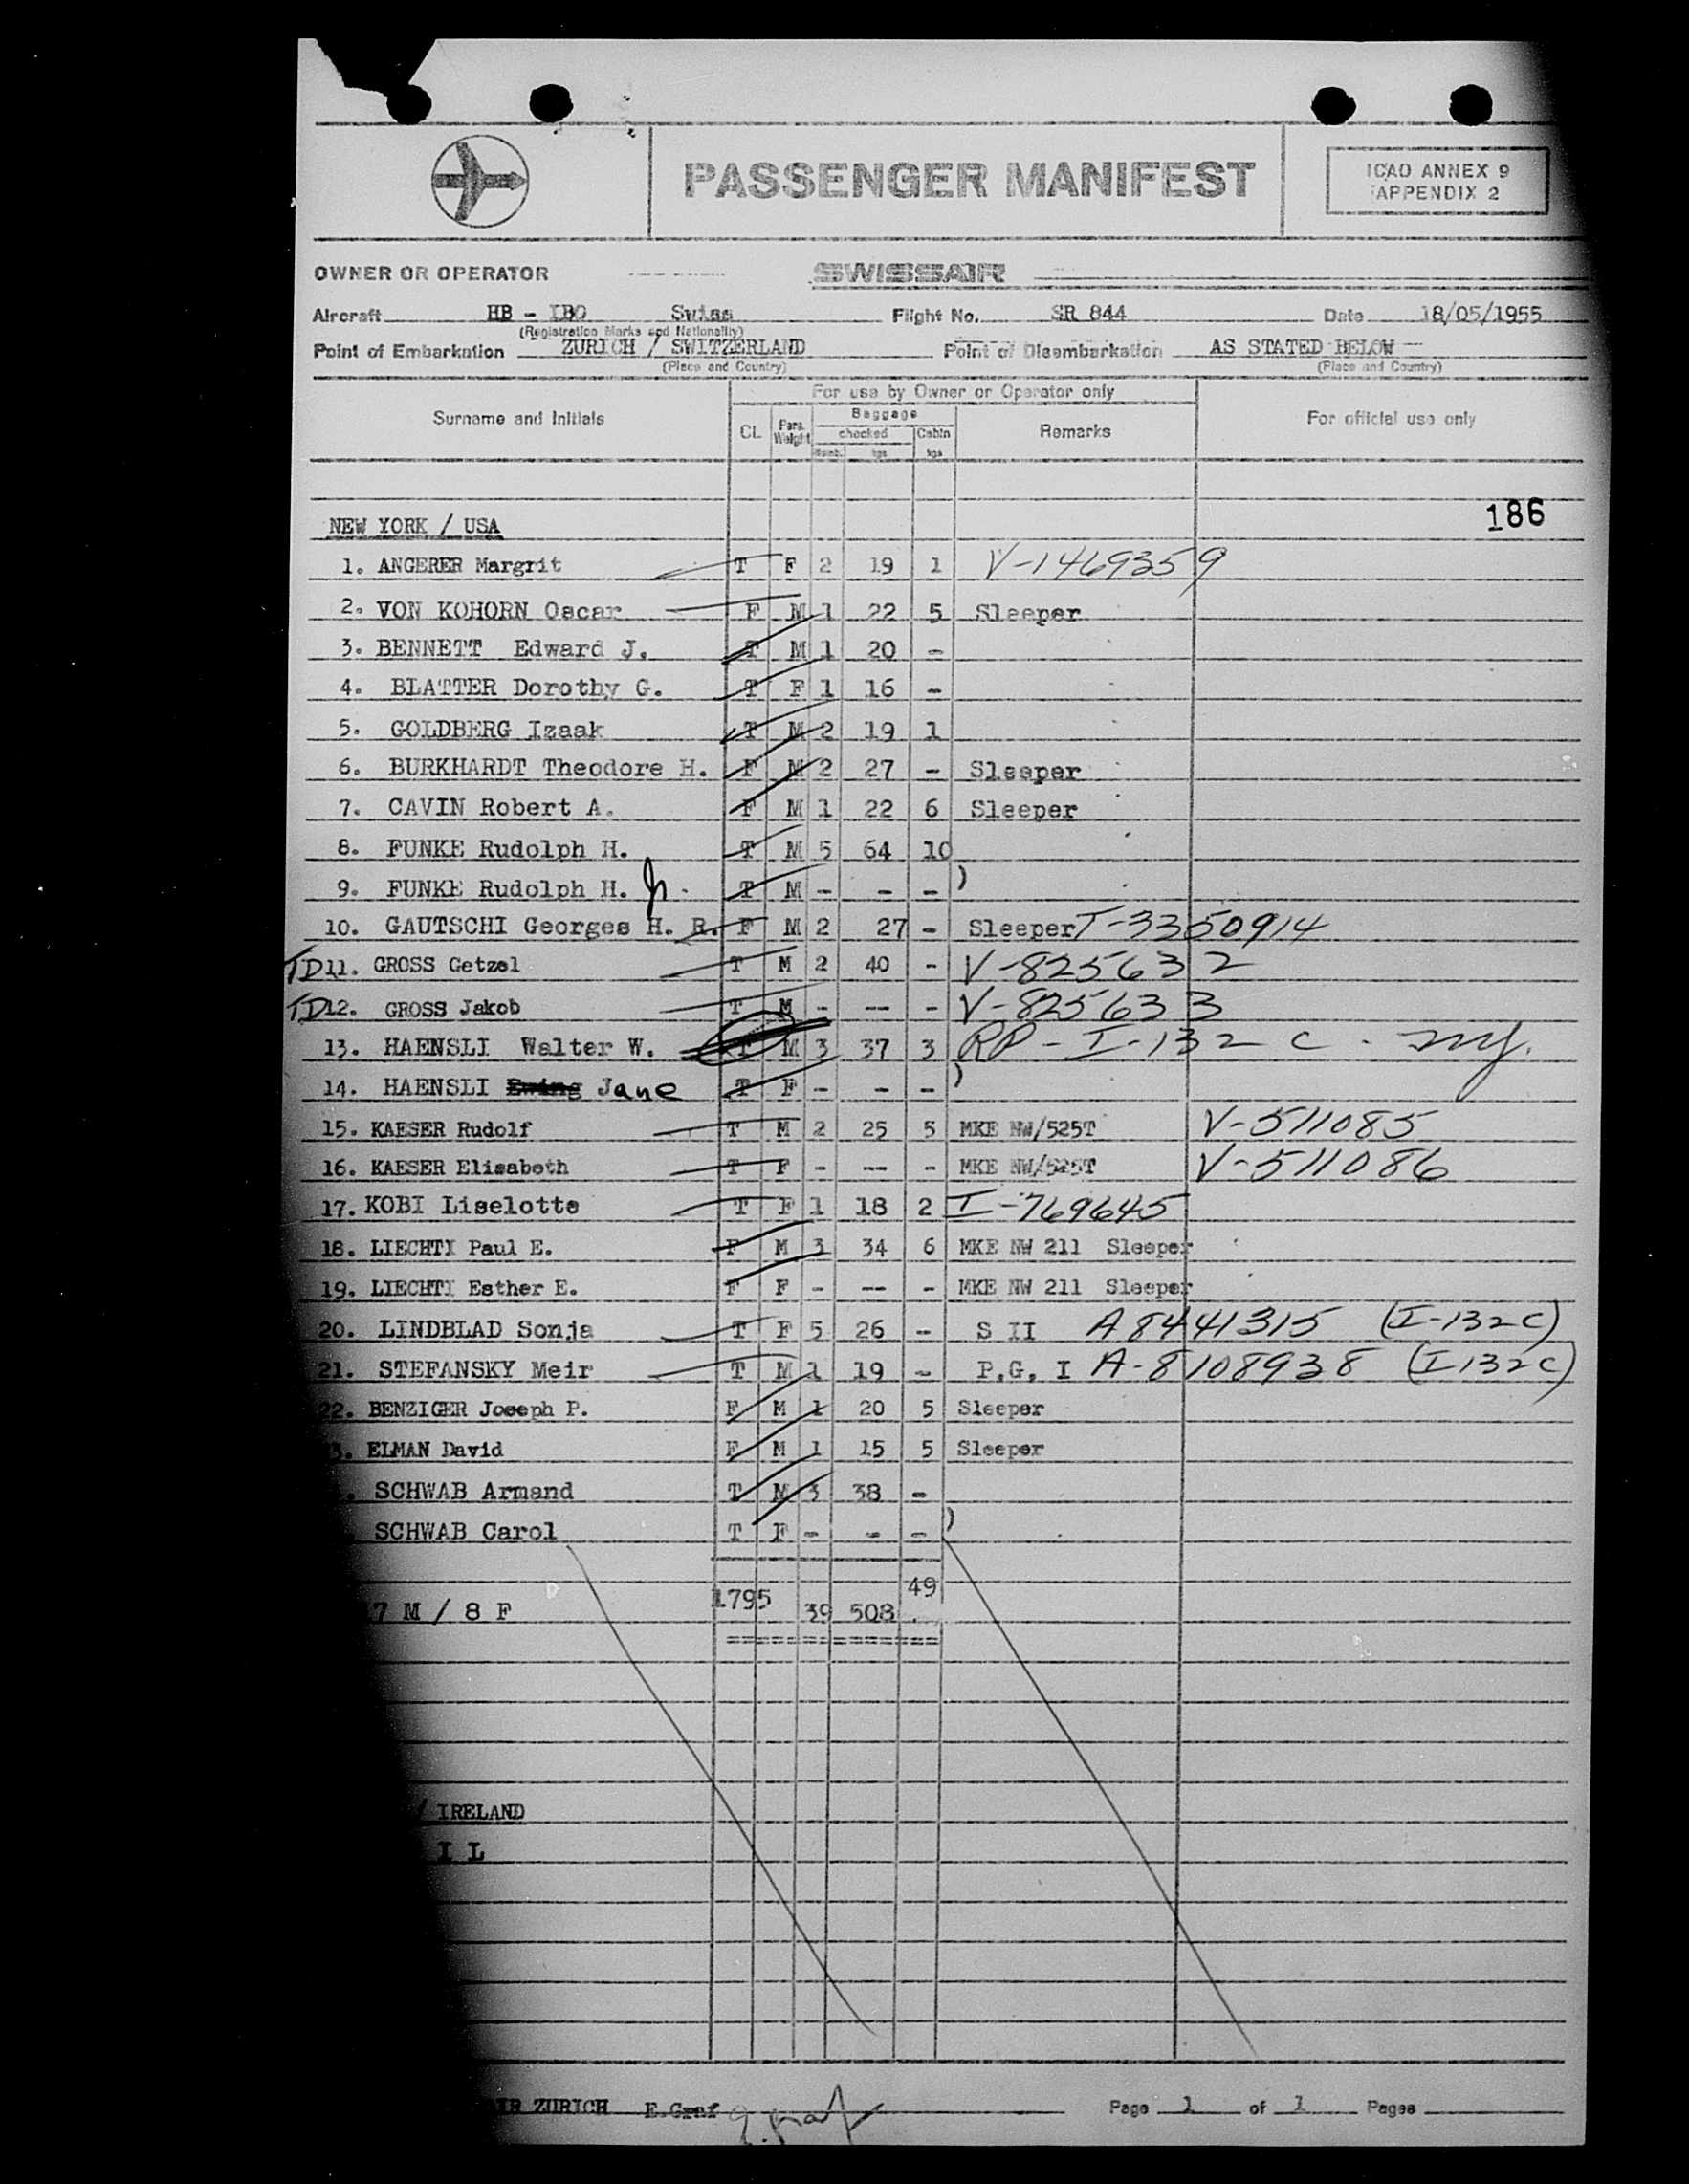 PASSENGER MANIFEST
ICAO ANNEX 9
APPENDIX 2
OWNER OR OPERATOR SWISSAIR
Aircraft HB - IBO Swiss Flight No. SR 844 Date 18/05/1955
(Registration Marks and Nationality)
Point of Embarkation ZURICH / SWITZERLAND Point of Disembarkation AS STATED BELOW
(Place and Country) (Place and Country)
For use by Owner or Operator only
Surname and Initials CL Pass. Weight Baggage checked Numb. kgs Cabin kgs Remarks For official use only
186
NEW YORK / USA
1. ANGERER Margrit T F 2 19 1 V-1469359
2. VON KOHORN Oscar F M 1 22 5 Sleeper
3. BENNETT Edward J. T M 1 20 -
4. BLATTER Dorothy G. T F 1 16 -
5. GOLDBERG Izaak T M 2 19 1
6. BURKHARDT Theodore H. F M 2 27 - Sleeper
7. CAVIN Robert A. F M 1 22 6 Sleeper
8. FUNKE Rudolph H. T M 5 64 10
9. FUNKE Rudolph H. Jr. T M - - - )
10. GAUTSCHI Georges H. R. F M 2 27 - Sleeper T-3350914
TD 11. GROSS Getzel T M 2 40 - V-825632
TD 12. GROSS Jakob T M - -- - V-825633
13. HAENSLI Walter W. T M 3 37 3 RP - I-132 C - ny.
14. HAENSLI Jane T F - - - )
15. KAESER Rudolf T M 2 25 5 MKE NW/525T V-511085
16. KAESER Elisabeth T F - -- - MKE NW/525T V-511086
17. KOBI Liselotte T F 1 18 2 I-769645
18. LIECHTI Paul E. F M 3 34 6 MKE NW 211 Sleeper
19. LIECHTI Esther E. F F - -- - MKE NW 211 Sleeper
20. LINDBLAD Sonja T F 5 26 - S II A8441315 (I-132C)
21. STEFANSKY Meir T M 1 19 - P.G. I A-8108938 (I132C)
22. BENZIGER Joseph P. F M 1 20 5 Sleeper
3. ELMAN David F M 1 15 5 Sleeper
. SCHWAB Armand T M 3 38 -
SCHWAB Carol T F - - - )
7 M / 8 F 1795 39 508 49
/ IRELAND
I L
IR ZURICH E.Graf E. Graf Page 1 of 1 Pages